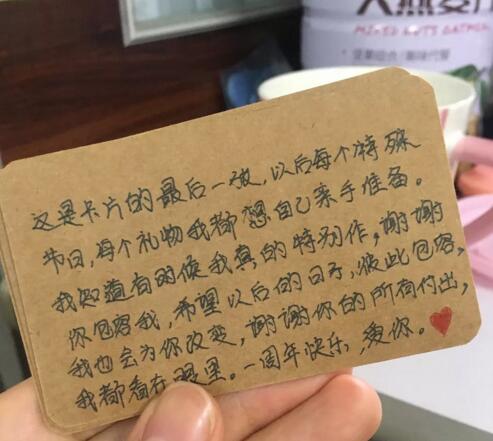 这是卡片的最后一张，以后每个特殊
节日，每个礼物我都想自己亲手准备。
我知道有的时候我真的特别作，谢谢
你包容我，希望以后的日子，彼此包容，
我也会为你改变，谢谢你的所有付出，
我都看在眼里。一周年快乐，爱你。
MIXED NUTS OATMEAL